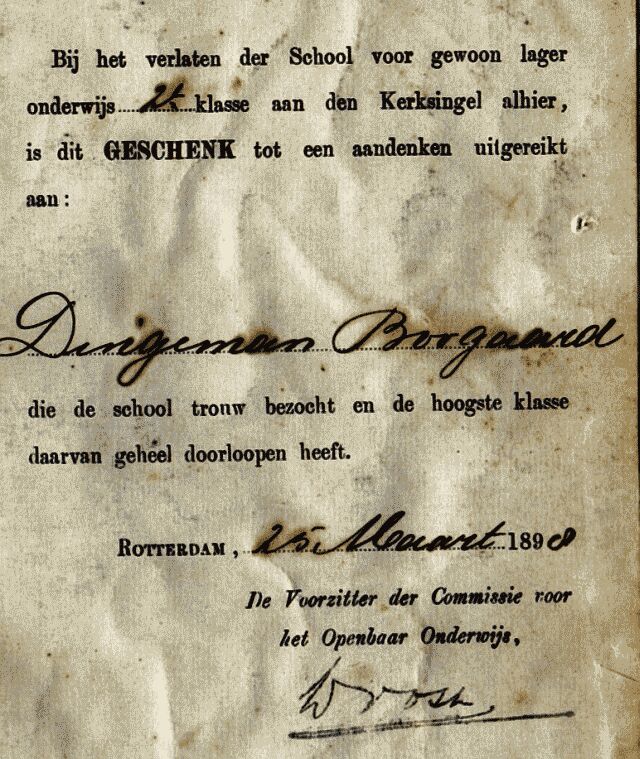 Bij het verlaten der School voor gewoon lager
onderwijs 2e klasse aan den Kerksingel alhier,
is dit GESCHENK tot een aandenken uitgereikt
aan:
Dingeman Boogaard
die de school trouw bezocht en de hoogste klasse
daarvan geheel doorloopen heeft.
ROTTERDAM, 25 Maart 1898
De Voorzitter der Commissie voor
het Openbaar Onderwijs,